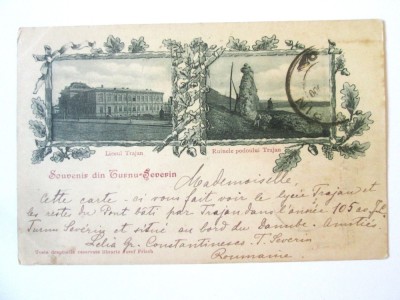 Liceul Trajan
Ruinele podului Trajan
Souvenir din Turnu-Severin
Mademoiselle,
Cette carte-ci vous fait voir le lycée Trajan et
les restes du Pont bâti par Trajan dans l'année 105 as J.
Turnu Severin et situé au bord du Danube. Amitiés
Lelia Gr. Constantinescu - T. Severin
Roumanie